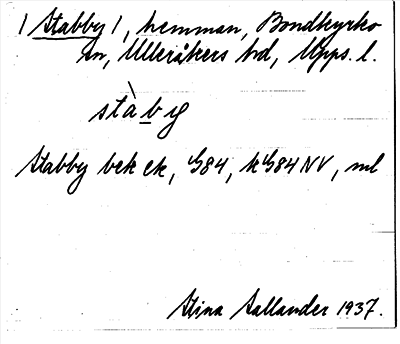 / Stabby /, hemman, Bondkyrko
sn, Ulleråkers hd, Upps. l.
stàby
Stabby bek ek, G84, kG84NV, ml
Stina Sallander 1937.